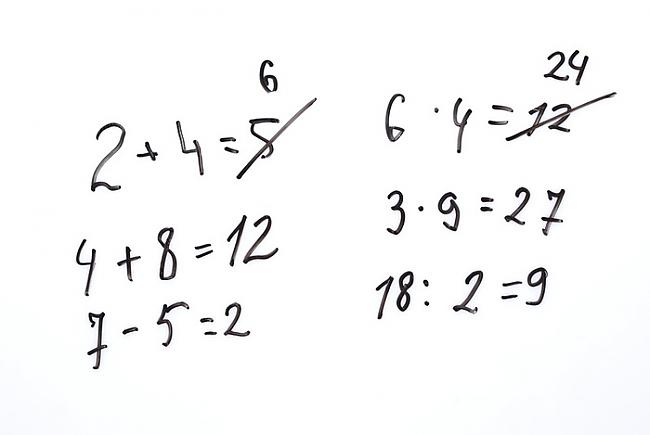 6
2 + 4 = 5
4 + 8 = 12
7 - 5 = 2
24
6 · 4 = 12
3 · 9 = 27
18 : 2 = 9